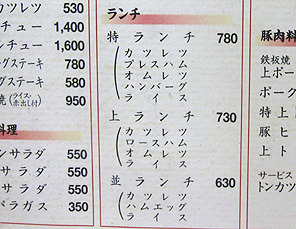 カツレツ 530
チュー 1,400
ンチュー 1,600
グステーキ 780
グステーキ 580
焼(ライス・赤出し付) 950
料理
ンサラダ 550
サラダ 550
サラダ 550
パラガス 350
ランチ
特ランチ 780
カツレツ
プレスハム
オムレツ
ハンバーグ
ライス
上ランチ 730
カツレツ
ロースハム
オムレツ
ライス
並ランチ 630
カツレツ
ハムエッグ
ライス
豚肉料
鉄板焼
上ポー
ポーク
特上
豚ヒ
上ト
サービス
トンカツ